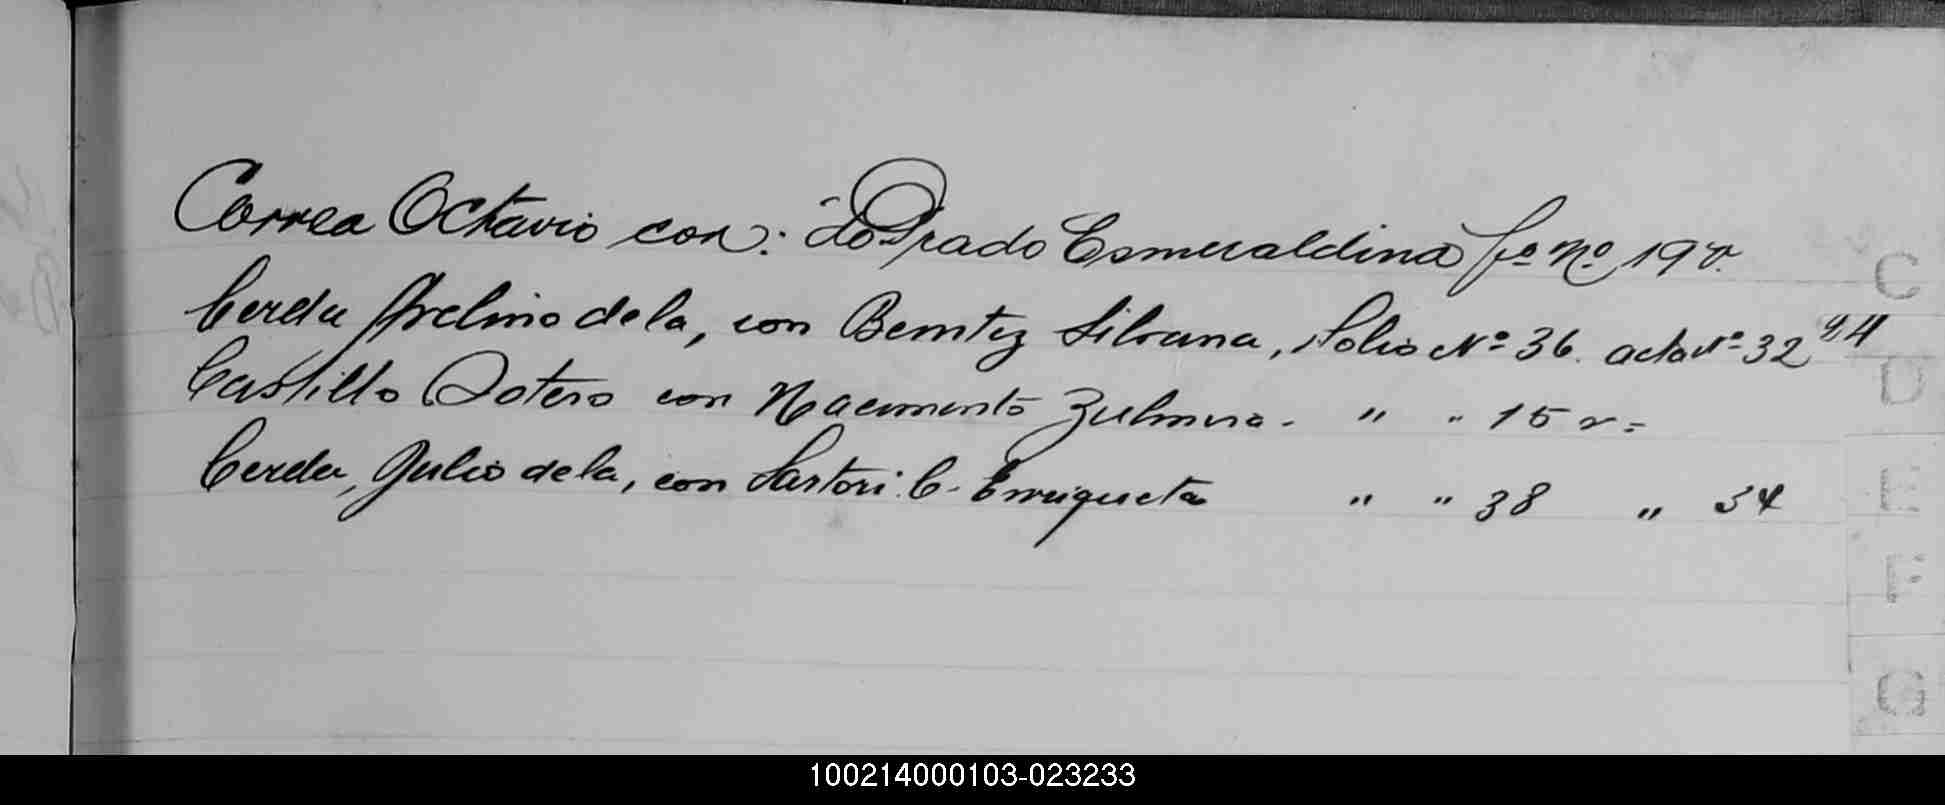 Correa Octavio con: do Prado Esmeraldina fº Nº 19 v.
Cerda Avelino de la, con Benitez Silvana, Folio Nº 36. acta Nº 32
Castillo Sotero con Nacimento Zulmira - " " 15 v =
Cerda, Julio de la, con Sartori C. Enriqueta " " 38 " 34
C
D
E
F
G
100214000103-023233